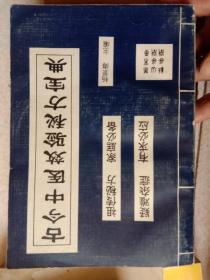 古今中医效验秘方宝典
祖传秘方 家庭必备
疑难杂症 有求必应
主编